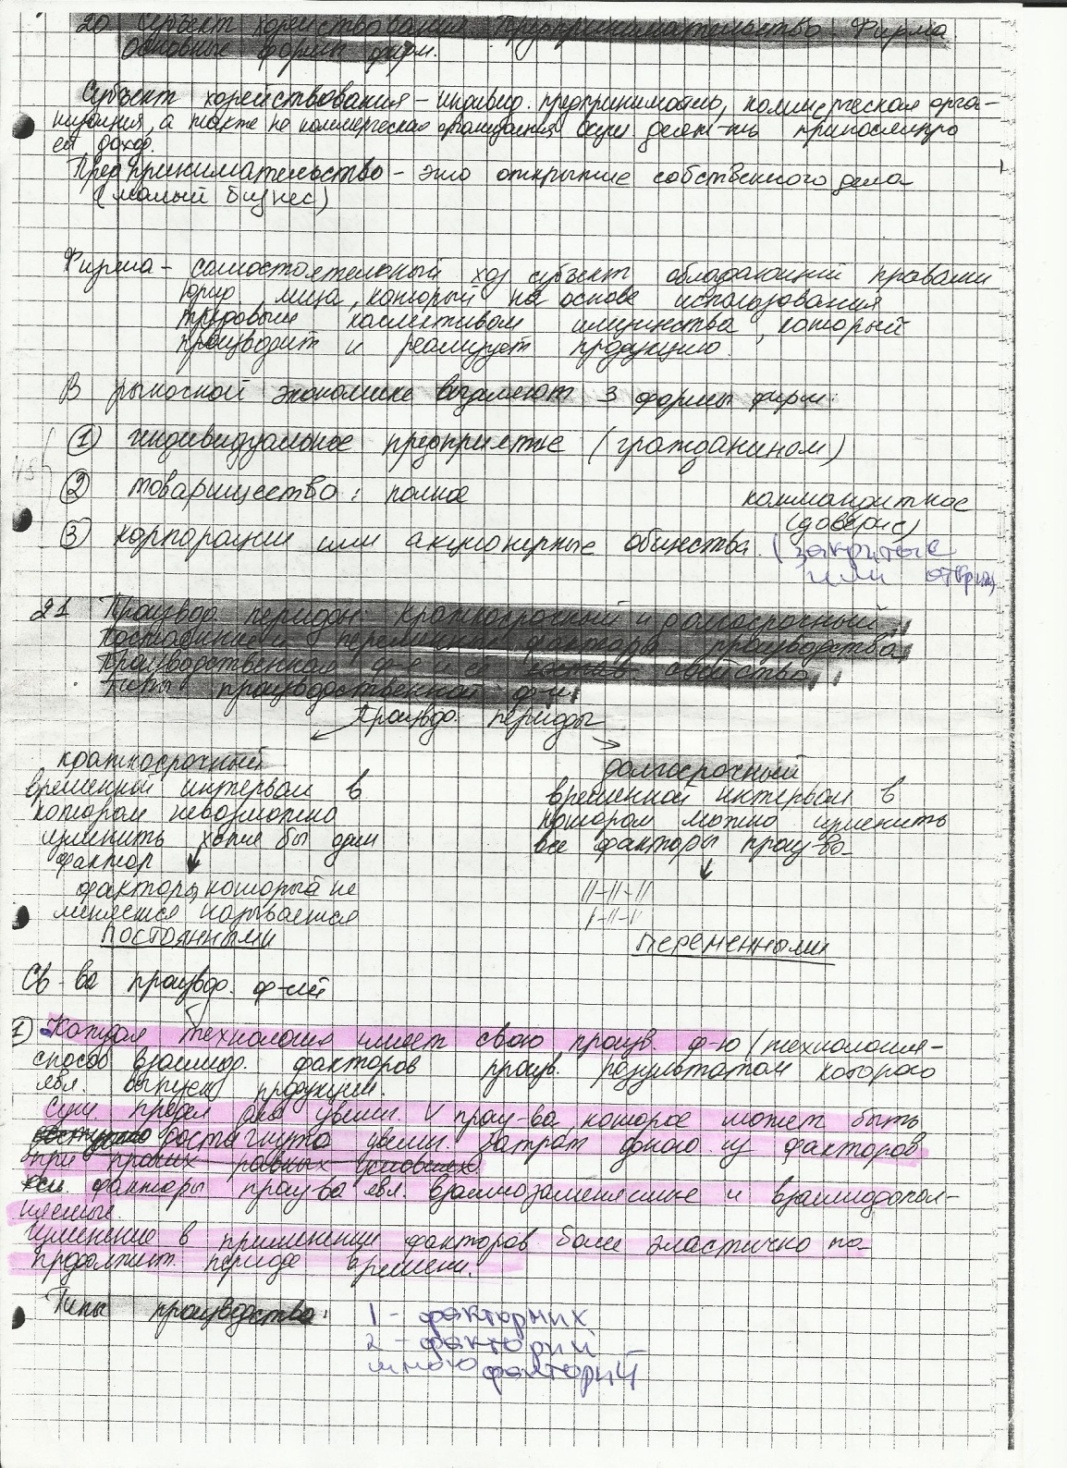 20 Субъект хозяйствования. Предпринимательство. Фирма.
Основные формы фирм.
Субъект хозяйствования – индивид. предприниматель, коммерческая орга-
низация, а также не коммерческая организация осущ. деят-ть приносящую
ей доход.
Предпринимательство – это открытие собственного дела
(малый бизнес)
Фирма – самостоятельный хоз субъект обладающий правами
юрид. лица, который на основе использования
трудовым коллективом имущества, который
производит и реализует продукцию.
В рыночной экономике выделяют 3 формы фирм:
① индивидуальное предприятие (гражданином)
② товарищество: полное коммандитное
(доверие)
③ корпорации или акционерные общества (закрытые
или откры)
21 Производ. периоды: краткосрочный и долгосрочный
Постоянные и переменные факторы производства
Производственная ф-я и ее свойства
Типы производственной ф-и
Произвд. периоды
краткосрочный
временной интервал в
котором невозможно
изменить хотя бы один
фактор
факторы, который не
меняется называется
постоянными
долгосрочный
временной интервал в
котором можно изменить
все факторы произ-ва
//-//-//
//-//-//
переменными
Св-ва произвд. ф-ий
1) Каждая технология имеет свою произв. ф-ю (технология-
способ взаимод. факторов произв. результатом которого
явл. выпуск продукции.
Сущ. предел для увелич. V произ-ва которое может быть
достигнуто увелич. затрат одного из факторов
при прочих равных условиях
факторы произ-ва явл. взаимозаменяемые и взаимодопол-
няемые
изменение в применении факторов более эластично по
продолжит. периоде времени.
Типы производства: 1 - факторних
2 - факторий
много факторий